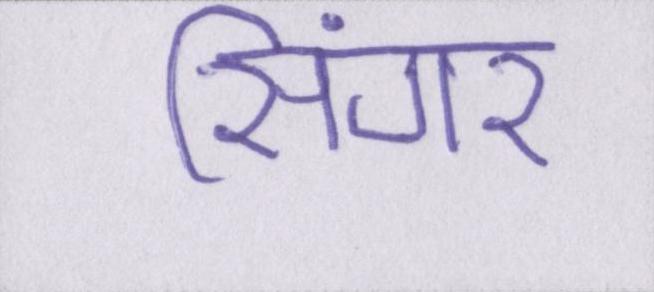 सिंगर